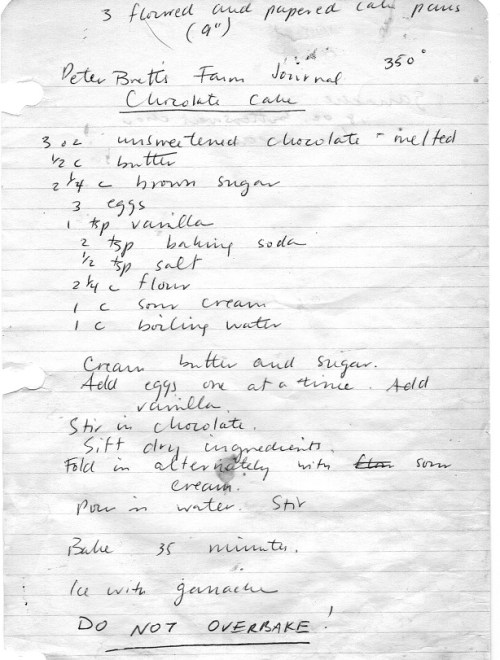 3 floured and papered cake pans
(9")
350°
Peter Brett's Farm Journal
Chocolate Cake
3 oz unsweetened chocolate - melted
½ c butter
2 ¼ c brown sugar
3 eggs
1 tsp vanilla
2 tsp baking soda
½ tsp salt
2 ¼ c flour
1 c sour cream
1 c boiling water
Cream butter and sugar.
Add eggs one at a time. Add
vanilla.
Stir in chocolate.
Sift dry ingredients.
Fold in alternately with sour
cream.
Pour in water. Stir
Bake 35 minutes.
Ice with ganache
DO NOT OVERBAKE!